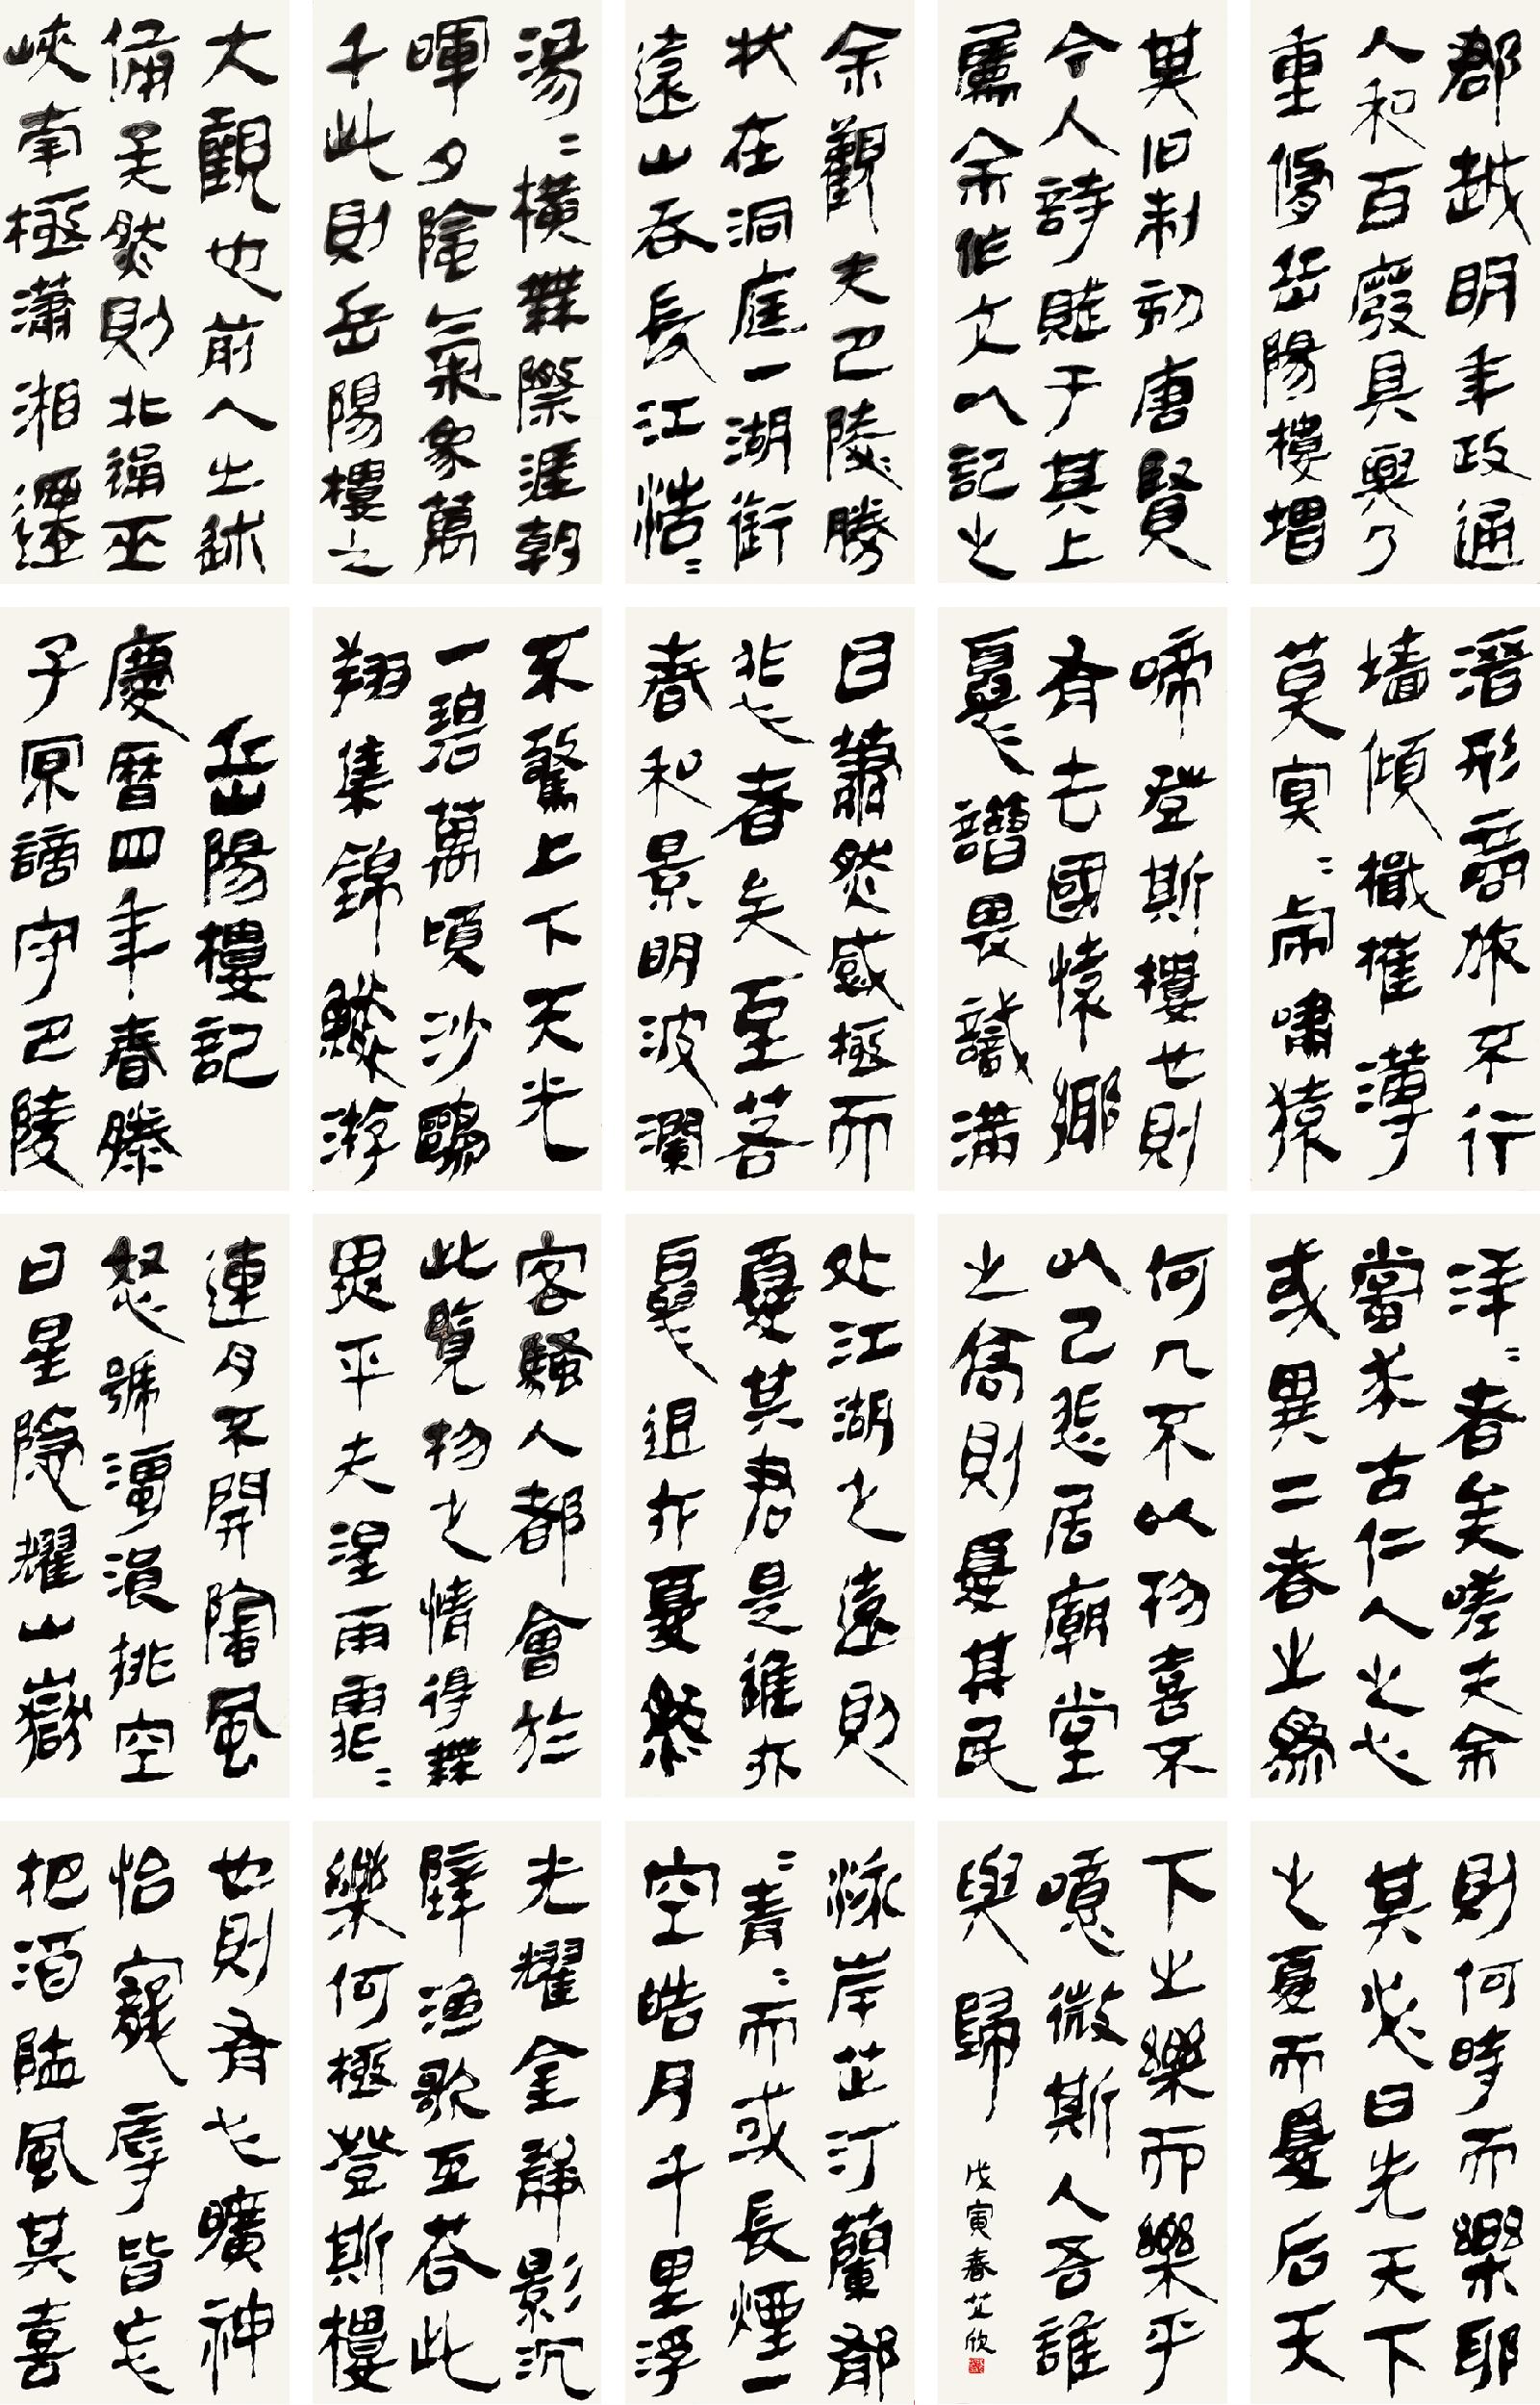 岳陽樓記
慶曆四年春滕
子京謫守巴陵
郡越明年政通
人和百廢具興乃
重修岳陽樓增
其旧制刻唐賢
今人詩賦于其上
屬余作文以記之
余觀夫巴陵勝
狀在洞庭一湖銜
遠山吞長江浩々
湯々橫無際涯朝
暉夕陰氣象萬
千此則岳陽樓之
大觀也前人之述
備矣然則北通巫
峽南極瀟湘遷
客騷人都會於
此覽物之情得無
異乎夫淫雨霏々
連月不開陰風
怒號濁浪排空
日星隱耀山嶽
潛形商旅不行
墻傾檝摧薄
莫冥々虎嘯猿
啼登斯樓也則
有去國懷鄉
憂讒畏譏滿
目蕭然感極而
悲者矣至若
春和景明波瀾
不驚上下天光
一碧萬頃沙鷗
翔集錦鱗游
泳岸芷汀蘭郁
々青々而或長煙一
空皓月千里浮
光耀金靜影沉
璧漁歌互答此
樂何極登斯樓
也則有心曠神
怡寵辱皆忘
把酒臨風其喜
洋々者矣嗟夫余
嘗求古仁人之心
或異二者之為
何不以物喜不
以己悲居廟堂
之高則憂其民
处江湖之遠則
憂其君是進亦
憂退亦憂然
則何時而樂耶
其必曰先天下
之憂而憂后天
下之樂而樂乎
噫微斯人吾誰
與歸
戊寅春芷欣